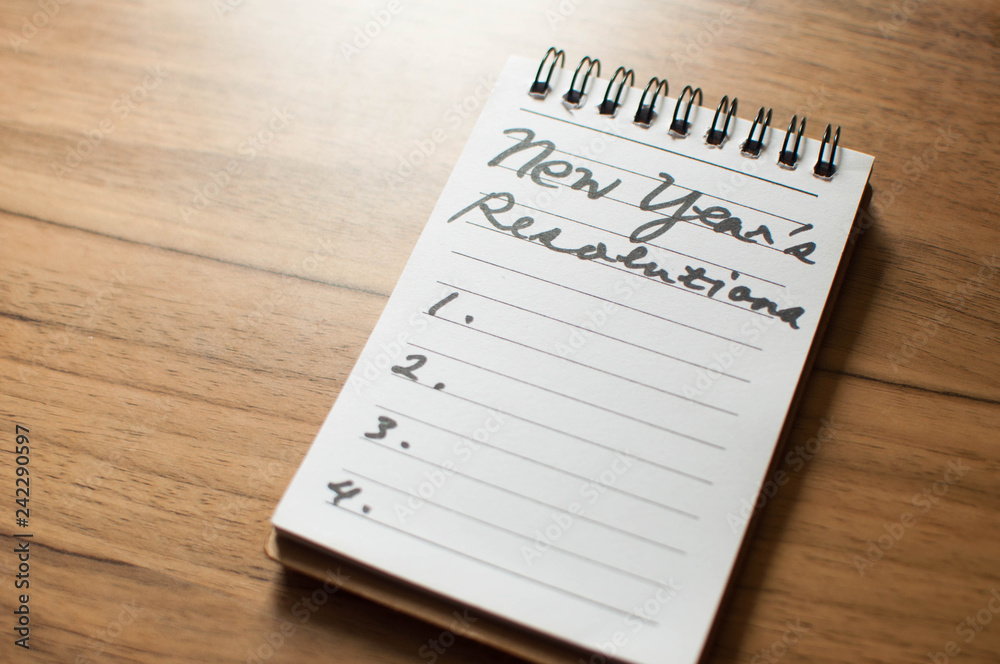 New Year's
Resolutions
1.
2.
3.
4.
Adobe Stock | #242290597